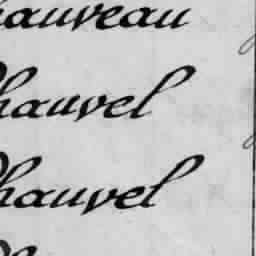 hauveau
Chauvel
Chauvel